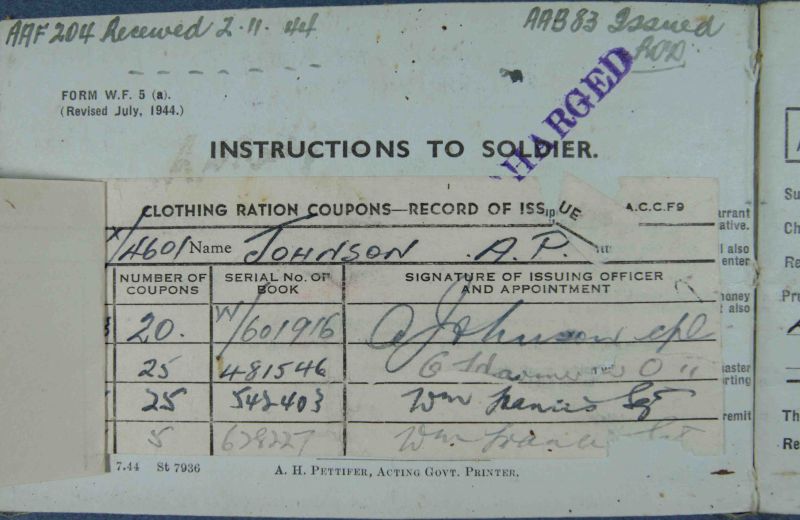 AAF 204 Received 2.11.44
AAB 83 Issued
FORM W.F. 5 (a).
(Revised July, 1944.)
HARGED
INSTRUCTIONS TO SOLDIER.
CLOTHING RATION COUPONS—RECORD OF ISSUE A.C.C.F9
X/4601 Name JOHNSON A.P.
NUMBER OF COUPONS SERIAL No. OF BOOK SIGNATURE OF ISSUING OFFICER AND APPOINTMENT
20. W/601916 A Johnson cpl
25 481546
25 542403 Wm Francis Sgt
5 628227 Wm
arrant
ative.
also
enter
money
t also
aster
orting
remit
7.44 St 7936 A. H. PETTIFER, ACTING GOVT. PRINTER.
A
Su
Ch
Re
Pr
Th
Re